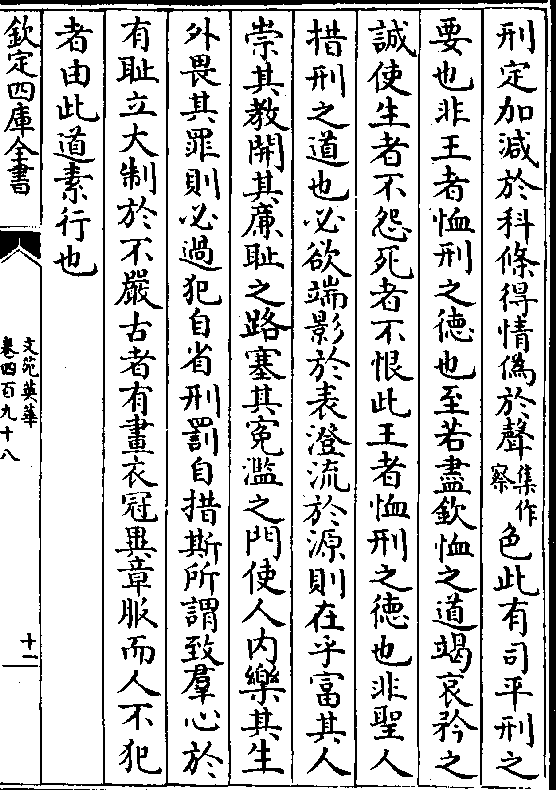 刑定加減於科條得情偽於聲集作察色此有司平刑之
要也非王者恤刑之德也至若盡欽恤之道竭哀矜之
誠使生者不怨死者不恨此王者恤刑之德也非聖人
措刑之道也必欲端影於表澄流於源則在乎富其人
崇其教開其廉耻之路塞其冤濫之門使人内樂其生
外畏其罪則必過犯自省刑罰自措斯所謂致羣心於
有耻立大制於不嚴古者有畫衣冠異章服而人不犯
者由此道素行也
欽定四庫全書
文苑英華
卷四百九十八
十一